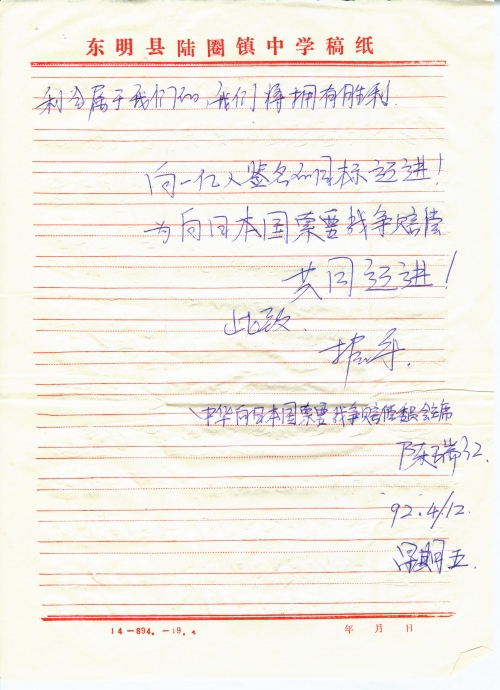 东明县陆圈镇中学稿纸
利全属于我们的,我们将拥有胜利.
向一亿人签名的目标迈进!
为向日本国索要战争赔偿
共同迈进!
此致.
握手.
中华向日本国索要战争赔偿委员会主席
陈瑞
92.4/12.
星期五.
14-894.-19.
年 月 日